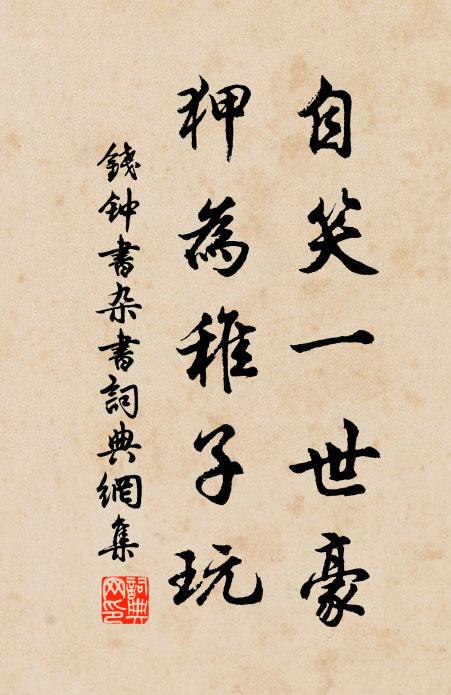 自笑一世豪
狎為稚子玩
錢钟書杂書詞典網集
詞典網印